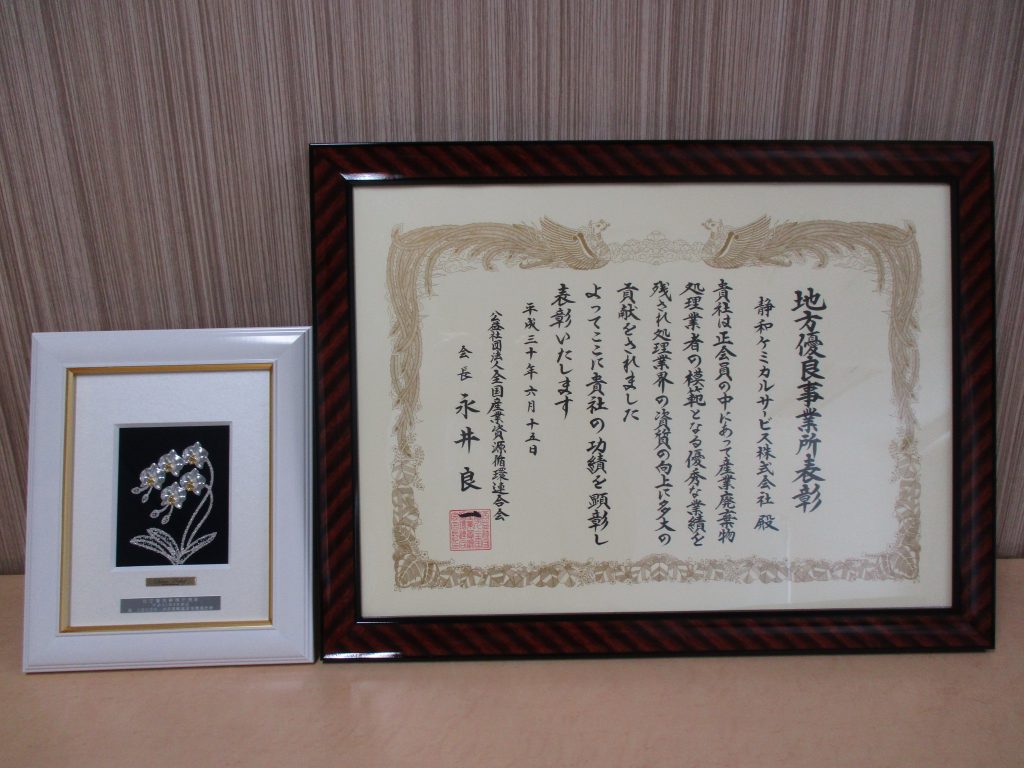 地方優良事業所表彰
静和ケミカルサービス株式会社 殿
貴社は正会員の中にあって産業廃棄物
処理業者の模範となる優秀な業績を
残され処理業界の資質の向上に多大の
貢献をされました
よってここに貴社の功績を顕彰し
表彰いたします
平成三十年六月十五日
公益社団法人全国産業資源循環連合会
会長 永井良一